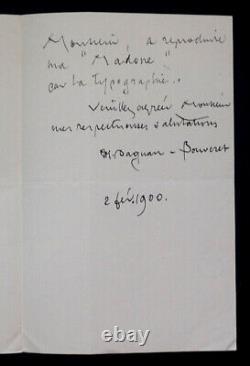 Monsieur, a reproduire
ma "Madone"
par la typographie..
Veuillez agréer Monsieur
mes respectueuses salutations
Dagnan-Bouveret
2 fév. 1900.
ebay